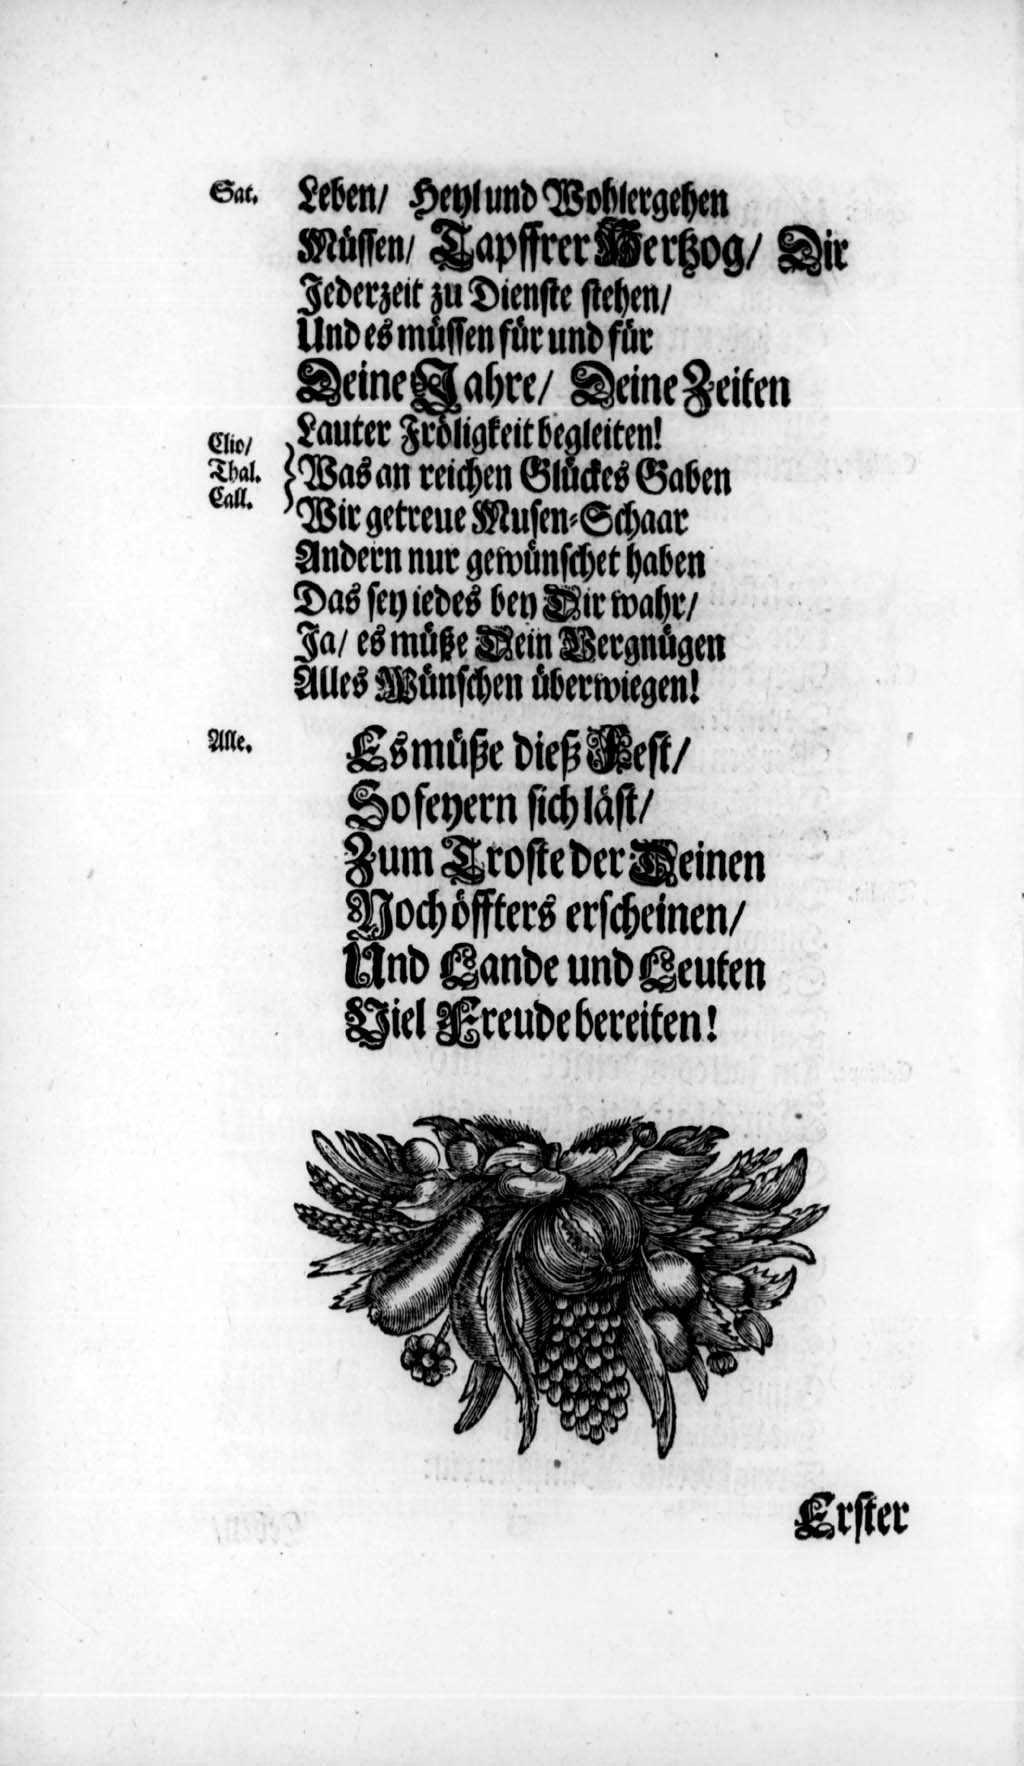 Sat. Leben/ Heyl und Wohlergehen
Müssen/ Tapffrer Hertzog/ Dir
Jederzeit zu Dienste stehen/
Und es müssen für und für
Deine Jahre/ Deine Zeiten
Lauter Fröligkeit begleiten!
Clio/
Thal. Was an reichen Glückes Gaben
Call. Wir getreue Musen-Schaar
Andern nur gewünschet haben
Das sey iedes bey Dir wahr/
Ja/ es müße Dein Vergnügen
Alles Wünschen überwiegen!
Alle. Es müße dieß Fest/
So feyern sich läst/
Zum Troste der Deinen
Noch öffters erscheinen/
Und Lande und Leuten
Viel Freude bereiten!
Erster